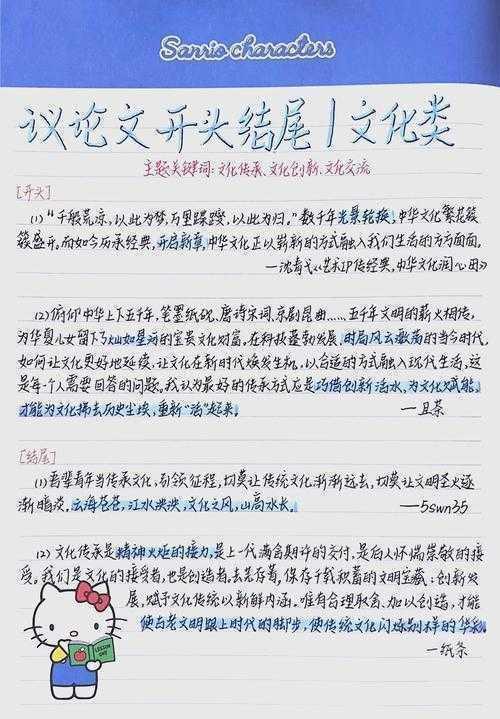 Sanrio characters
议论文开头结尾|文化类
主题关键词:文化传承、文化创新、文化交流
[开头]
(1)“千般荒凉,以此为梦,万里蹀躞,以此为归。”数千年光景轮换,中华文化繁花簇
簇盛开。而如今历承经典,开启新章,中华文化正以崭新的方式融入我们生活的方方面面。
—沈青弋《艺术IP传经典,中华文化润心田》
(2)俯仰中华上下五千年,笔墨纸砚、唐诗宋词、京剧昆曲……五千年文明的薪火相传,
为华夏儿女留下了灿如星河的宝贵文化财富。在科技蓬勃发展,时局风云激荡的当今时代,
如何让文化更好地延续,让文化在新时代焕发生机,以合适的方式融入现代生活,这
是每个人需要回答的问题。我认为最好的传承方式应是巧借创新活水,为文化赋能,
才能为文化拂去历史尘埃,重新“活”起来。 —且茶
[结尾]
(1)吾辈青年当传承文化,引领征程,切莫让传统文化渐渐远去,切莫让文明圣火逐
渐暗淡。云海苍苍,江水泱泱,文化之风,山高水长。 —5swn35
(2)文化传承是精神火炬的接力,是上一代满含期许的交付,是后人怀揣崇敬的接
受。我们是文化的接受者,也是创造者,去芜存菁,保存千载积蓄的文明宝藏;创新发
展,赋予文化传统以新鲜内涵。唯有合理取舍,加以创造,才能
使古老文明跟上时代的脚步,使传统文化闪烁别样的华彩。
—纸条
LESSON
ONE